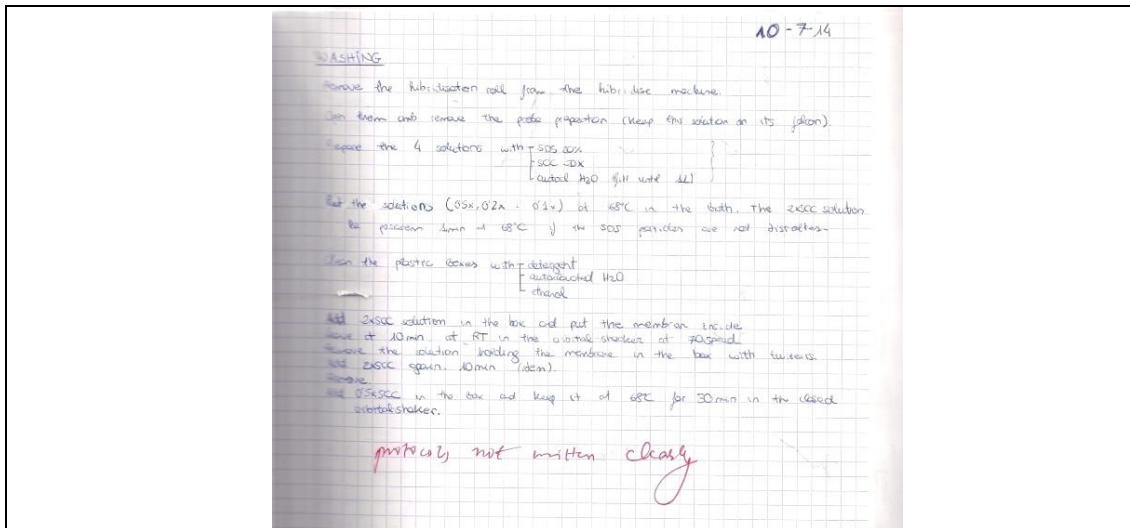 10-7-14
WASHING
Remove the hibridisation roll from the hibridise machine.
Open them and remove the probe preparation (keep this solution on its falcon).
Prepare the 4 solutions with SDS 20%
SCC 20X
autocl H2O (fill until 1L)
Put the solutions (0'5x, 0'2x, 0'1x) at 68°C in the bath. The 2xSCC solution
be 1min at 68°C if the SDS particles are not
Clean the plastic boxes with detergent
autoclavated H2O
ethanol
Add 2xSCC solution in the box and put the membran inside
Leave it 10min at RT in the orbital shacker at 70speed
Remove the solution holding the membrane in the box with
Add 2xSCC again. 10min (idem).
Remove
Add 0'5xSCC in the box and keep it at 68°C for 30min in the closed
orbital shaker.
protocols not written clearly